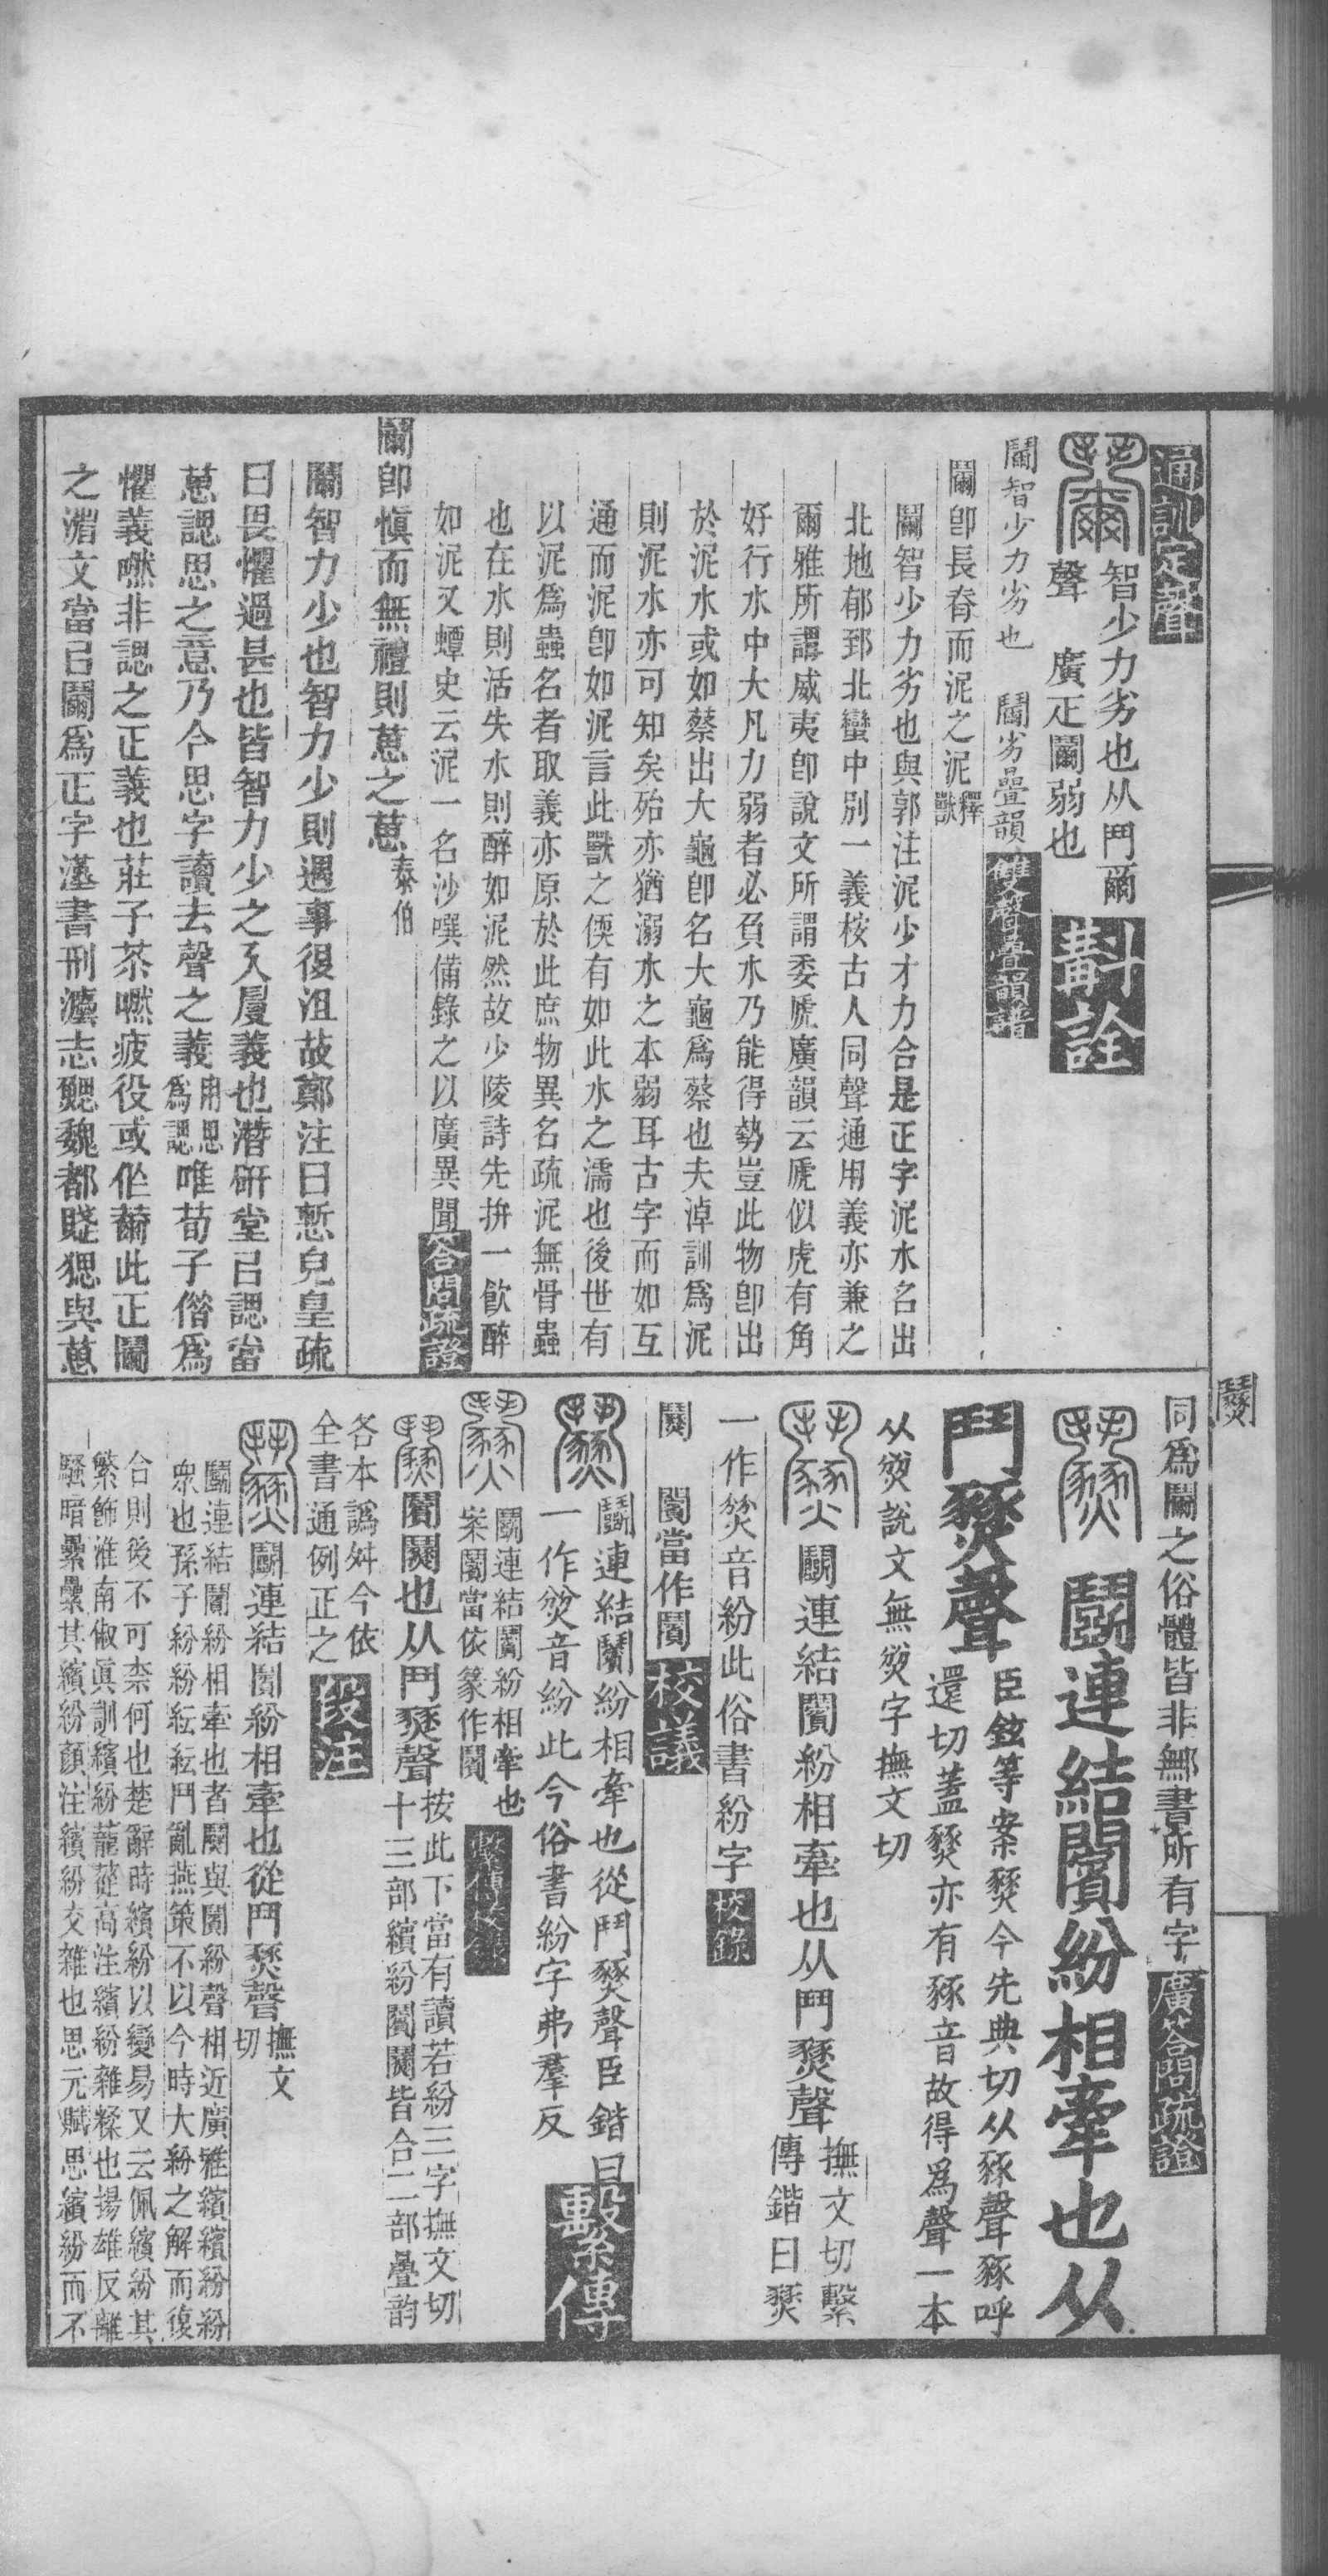 通訓定聲
智少力劣也从鬥爾
聲　廣疋鬮弱也　斠詮
鬮智少力劣也　鬮劣疊韻　雙聲疊韻譜
鬮卽長脊而泥之泥釋獸
鬮智少力劣也與郭注泥少才力合是正字泥水名出
北地郁郅北蠻中別一義桉古人同聲通用義亦兼之
爾雅所謂威夷卽說文所謂委虒廣韻云虒似虎有角
好行水中大凡力弱者必負水乃能得勢豈此物卽出
於泥水或如蔡出大龜卽名大龜爲蔡也夫淖訓爲泥
則泥水亦可知矣殆亦猶溺水之本弱耳古字而如互
通而泥卽如泥言此獸之偄有如此水之濡也後世有
以泥爲蟲名者取義亦原於此庶物異名疏泥無骨蟲
也在水則活失水則醉如泥然故少陵詩先拚一飮醉
如泥又蟫史云泥一名沙噀備錄之以廣異聞　答問疏證
鬮卽愼而無禮則葸之葸泰伯
鬮智力少也智力少則遇事很沮故鄭注曰慙皃皇疏
曰畏懼過甚也皆智力少之又厦義也潛研堂㠯諰當
葸諰思之意乃今思字讀去聲之義用思爲諰唯荀子偕爲
懼義嘫非諰之正義也莊子苶嘫疲役或作薾此正鬮
之湄文當㠯鬮爲正字漢書刑灋志鰓魏都賤猤與葸
同爲鬮之俗體皆非鄦書所有字　廣答問疏證
鬭連結闠紛相牽也从
鬥燹聲　臣鉉等案燹今先典切从豩聲豩呼
還切蓋燹亦有豩音故得爲聲一本
从燓說文無燓字撫文切
鬭連結闠紛相牽也从鬥燹聲撫文切繫
傳鍇曰燹
一作燓音紛此俗書紛字　校錄
闠當作闠　校議
鬭連結闠紛相牽也從鬥燹聲臣鍇曰
一作燓音紛此今俗書紛字弗羣反　繫傳
鬭連結闠紛相牽也
案闠當依篆作闠　繫傳校錄
也从鬥燹聲按此下當有讀若紛三字撫文切
十三部繽紛闠鬩皆合二部疊韵
各本譌舛今依
全書通例正之　段注
鬭連結闠紛相牽也從鬥燹聲撫文
切
鬭連結闠紛相牽也者鬭與闠紛聲相近廣雅繽繽紛紛
衆也孫子紛紛紜紜鬥亂燕策不以今時大紛之解而復
合則後不可柰何也楚辭時繽紛以變易又云佩繽紛其
繁飾淮南俶眞訓繽紛蘢蓯高注繽紛雜糅也揚雄反離
騷暗纍纍其繽紛顏注繽紛交雜也思元賦思繽紛而不